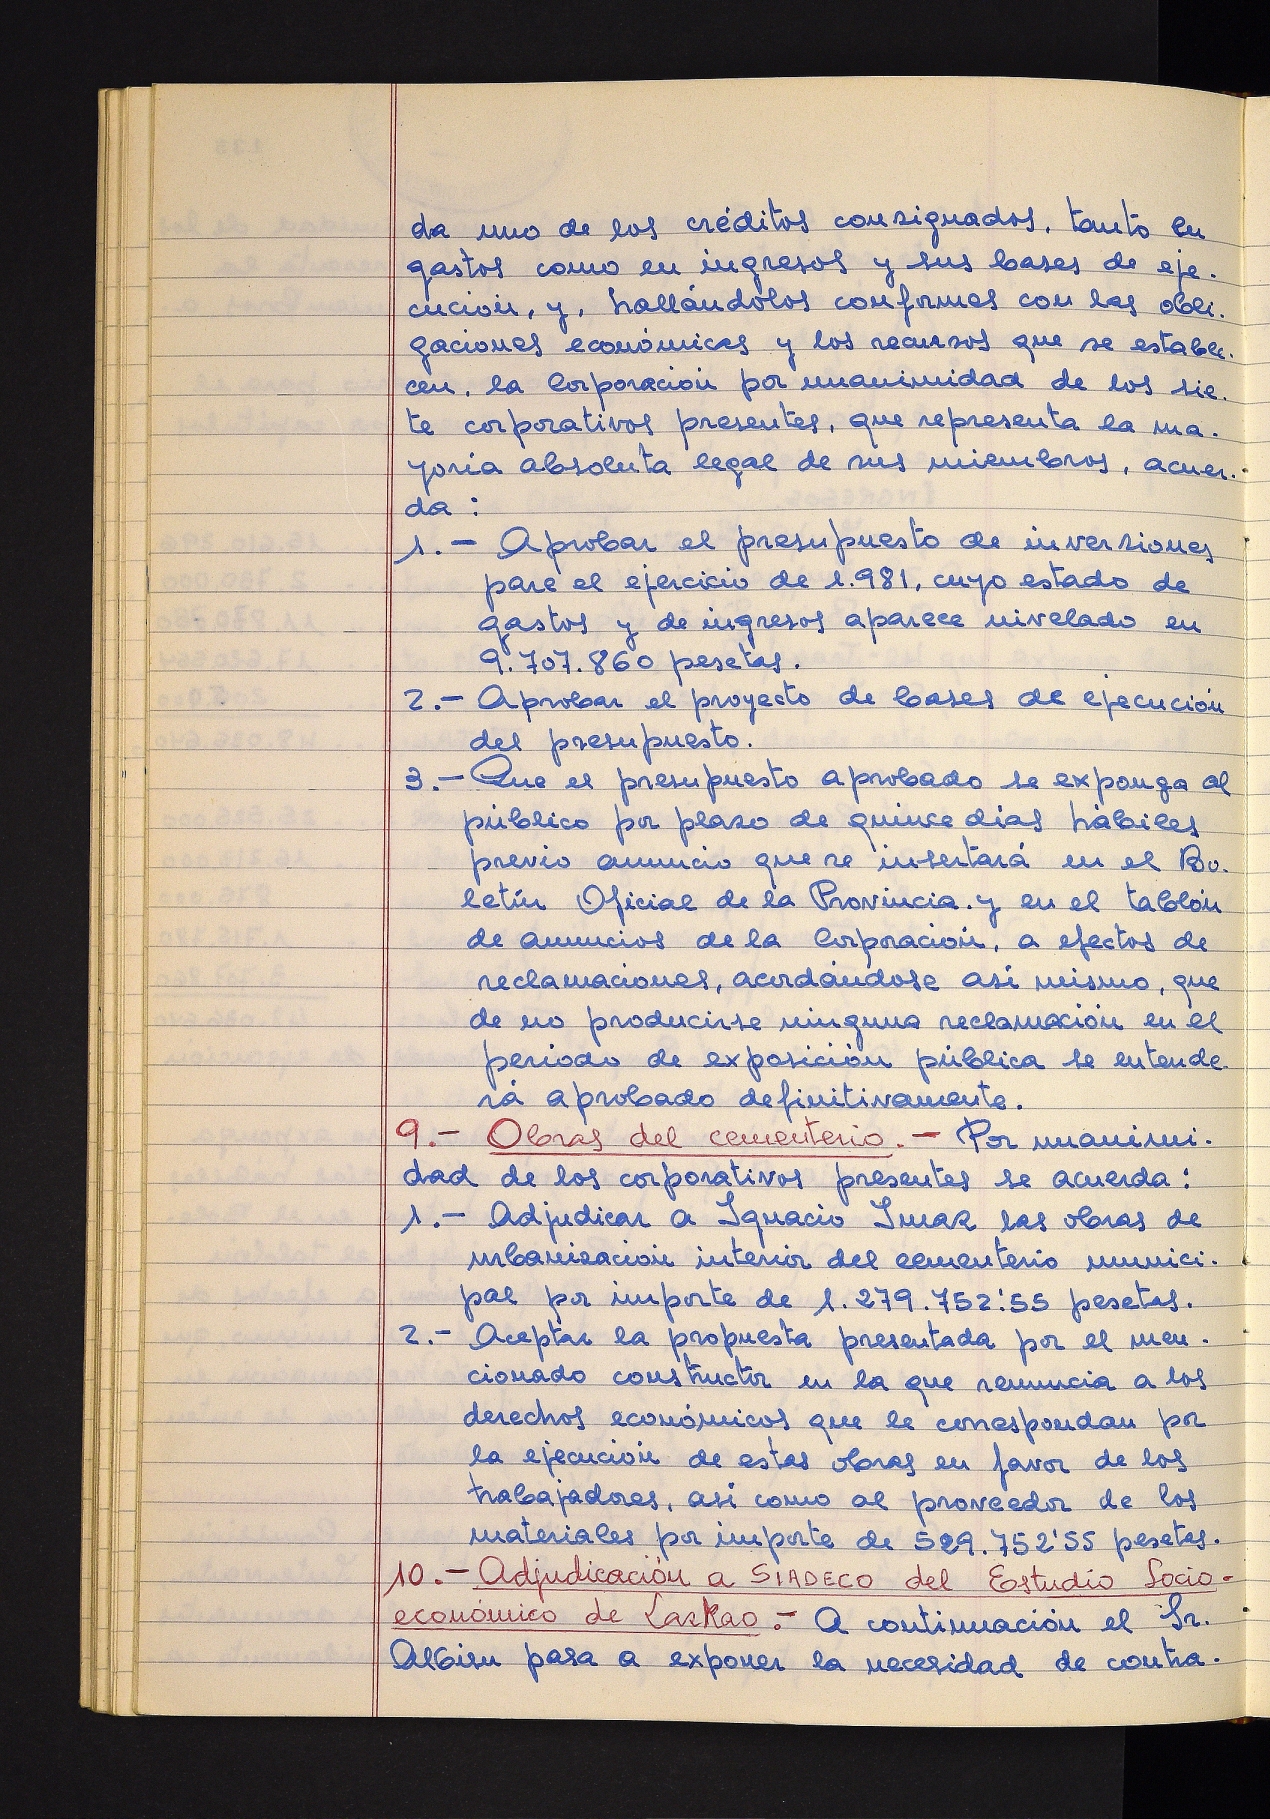 da uno de los créditos consignados, tanto en
gastos como en ingresos y sus bases de eje-
cución, y, hallándolos conformes con las obli-
gaciones económicas y los recursos que se estable-
cen, la Corporación por unanimidad de los sie-
te corporativos presentes, que representa la ma-
yoría absoluta legal de sus miembros, acuer-
da :
1.- Aprobar el presupuesto de inversiones
para el ejercicio de 1.981, cuyo estado de
gastos y de ingresos aparece nivelado en
9.707.860 pesetas.
2.- Aprobar el proyecto de bases de ejecución
del presupuesto.
3.- Que el presupuesto aprobado se exponga al
público por plazo de quince días hábiles
previo anuncio que se insertará en el Bo-
letín Oficial de la Provincia y en el tablón
de anuncios de la Corporación, a efectos de
reclamaciones, acordándose así mismo, que
de no producirse ninguna reclamación en el
período de exposición pública se entende-
rá aprobado definitivamente.
9.- Obras del cementerio.- Por unanimi-
dad de los corporativos presentes se acuerda :
1.- Adjudicar a Ignacio Imaz las obras de
urbanización interior del cementerio munici-
pal por importe de 1.279.752'55 pesetas.
2.- Aceptar la propuesta presentada por el men-
cionado constructor en la que renuncia a los
derechos económicos que le correspondan por
la ejecución de estas obras en favor de los
trabajadores, así como al proveedor de los
materiales por importe de 529.752'55 pesetas.
10.- Adjudicación a SIADECO del Estudio Socio-
económico de Lazkao.- A continuación el Sr.
Albisu pasa a exponer la necesidad de contra-